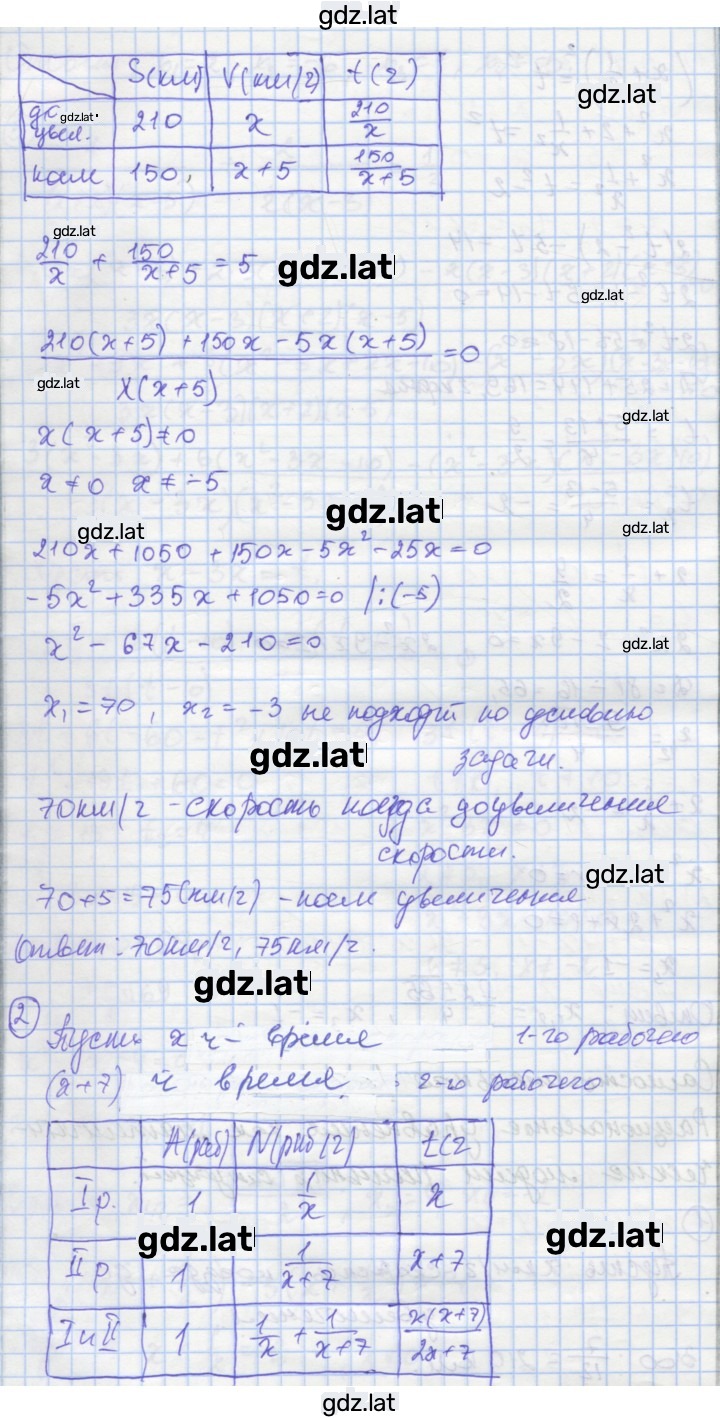 gdz.lat
S(км) V(км/ч) t(ч)
до gdz.lat увел. 210 x 210/x
посл 150, x+5 150/(x+5)
gdz.lat
gdz.lat
210/x + 150/(x+5) = 5
gdz.lat
gdz.lat
(210(x+5)+150x-5x(x+5))/(x(x+5)) = 0
gdz.lat
x(x+5)≠0
gdz.lat
x≠0 x≠-5
gdz.lat
gdz.lat
gdz.lat
210x+1050+150x-5x²-25x=0
-5x²+335x+1050=0 /:(-5)
x²-67x-210=0
gdz.lat
x₁=70, x₂=-3 не подходит по условию
gdz.lat
задачи.
70км/ч - скорость поезда до увеличения
скорости.
gdz.lat
70+5=75(км/ч) - после увеличения
Ответ: 70км/ч, 75км/ч.
gdz.lat
2
Пусть x ч - время 1-го рабочего
(x+7) ч время 2-го рабочего
A(раб) N(раб/ч) t(ч
I р. 1 1/x x
gdz.lat gdz.lat
II р 1 1/(x+7) x+7
I и II 1 1/x + 1/(x+7) x(x+7)/(2x+7)
gdz.lat